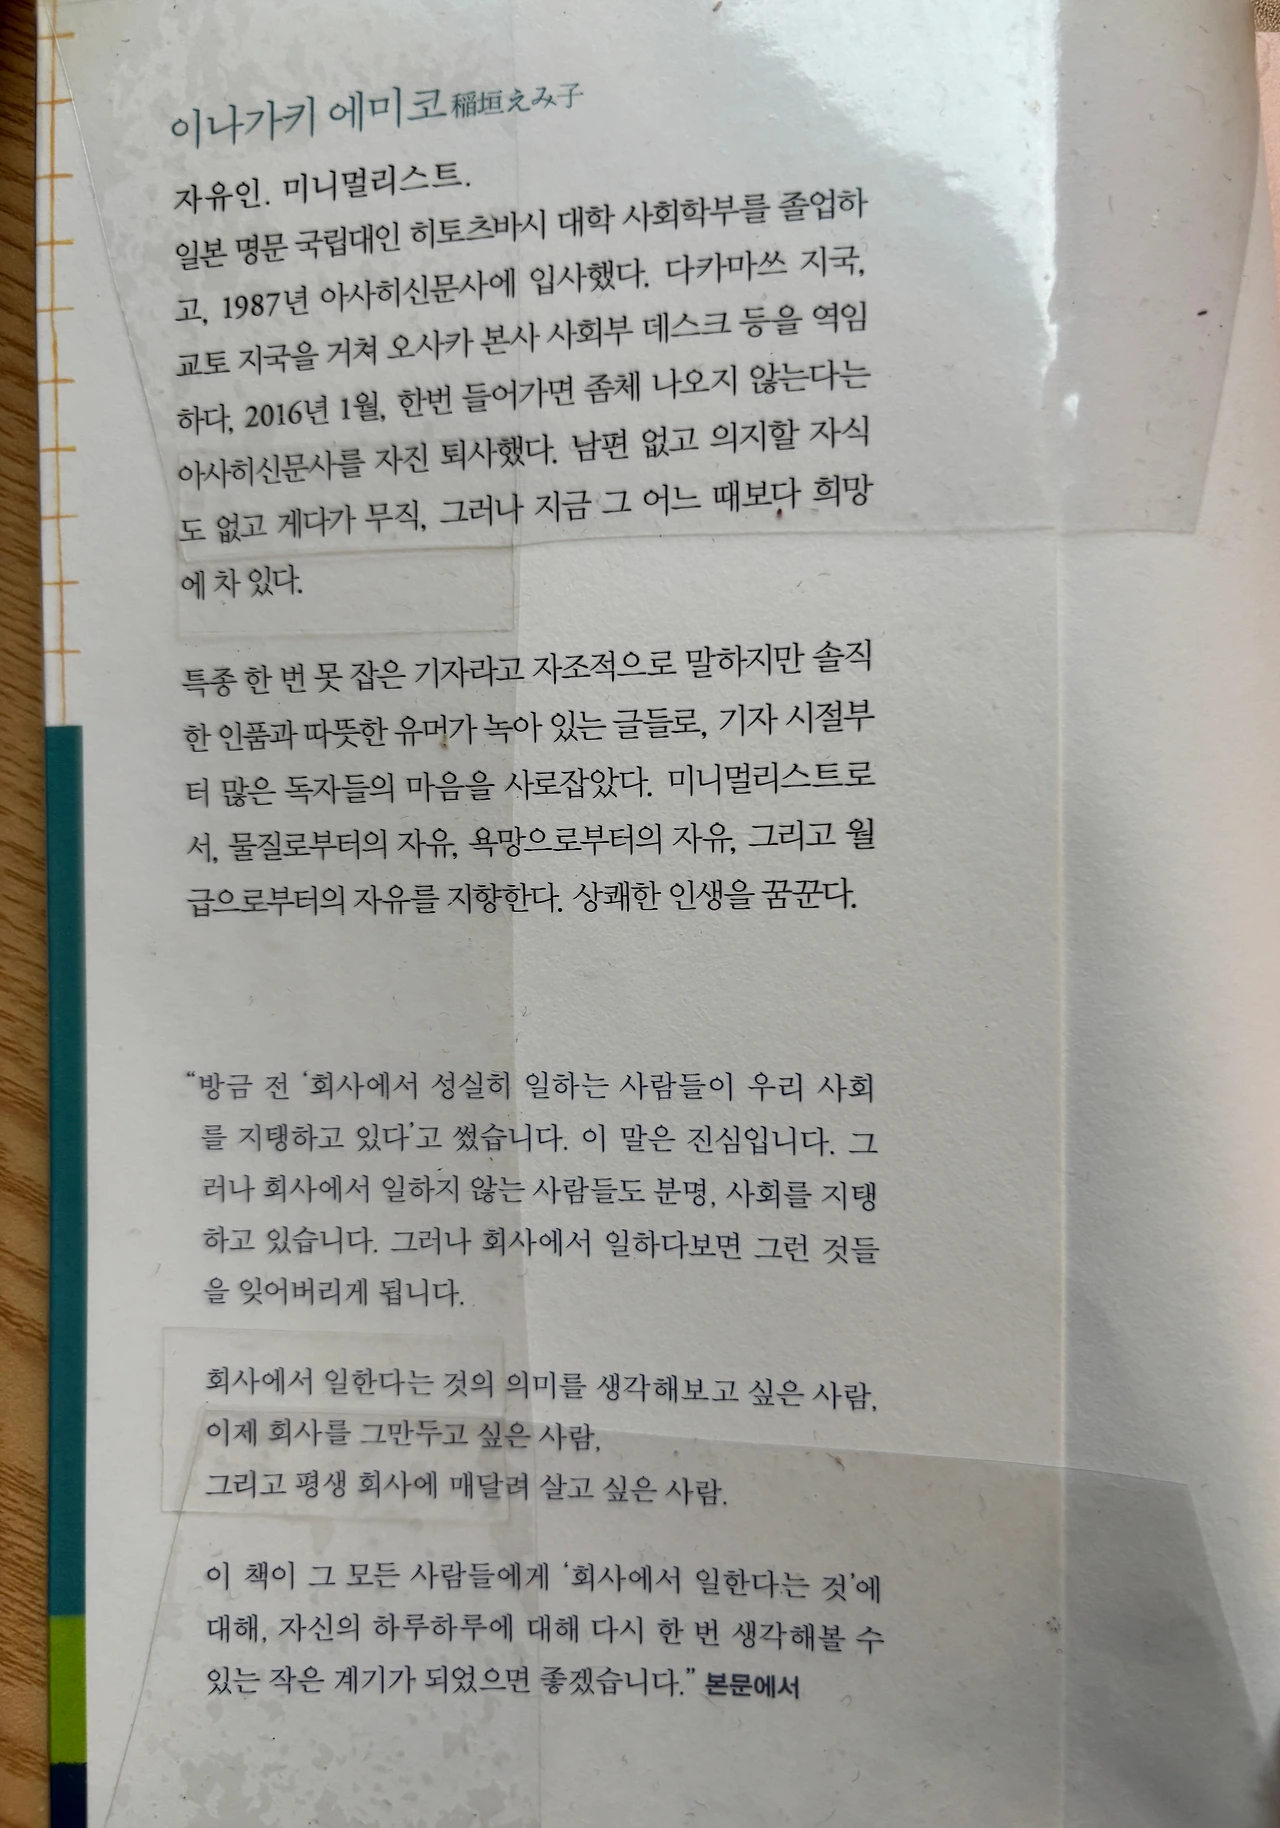 이나가키 에미코 稲垣えみ子
자유인. 미니멀리스트.
일본 명문 국립대인 히토츠바시 대학 사회학부를 졸업하
고, 1987년 아사히신문사에 입사했다. 다카마쓰 지국,
교토 지국을 거쳐 오사카 본사 사회부 데스크 등을 역임
하다, 2016년 1월, 한번 들어가면 좀체 나오지 않는다는
아사히신문사를 자진 퇴사했다. 남편 없고 의지할 자식
도 없고 게다가 무직, 그러나 지금 그 어느 때보다 희망
에 차 있다.
특종 한 번 못 잡은 기자라고 자조적으로 말하지만 솔직
한 인품과 따뜻한 유머가 녹아 있는 글들로, 기자 시절부
터 많은 독자들의 마음을 사로잡았다. 미니멀리스트로
서, 물질로부터의 자유, 욕망으로부터의 자유, 그리고 월
급으로부터의 자유를 지향한다. 상쾌한 인생을 꿈꾼다.
“방금 전 ‘회사에서 성실히 일하는 사람들이 우리 사회
를 지탱하고 있다’고 썼습니다. 이 말은 진심입니다. 그
러나 회사에서 일하지 않는 사람들도 분명, 사회를 지탱
하고 있습니다. 그러나 회사에서 일하다보면 그런 것들
을 잊어버리게 됩니다.
회사에서 일한다는 것의 의미를 생각해보고 싶은 사람,
이제 회사를 그만두고 싶은 사람,
그리고 평생 회사에 매달려 살고 싶은 사람.
이 책이 그 모든 사람들에게 ‘회사에서 일한다는 것’에
대해, 자신의 하루하루에 대해 다시 한 번 생각해볼 수
있는 작은 계기가 되었으면 좋겠습니다.” 본문에서